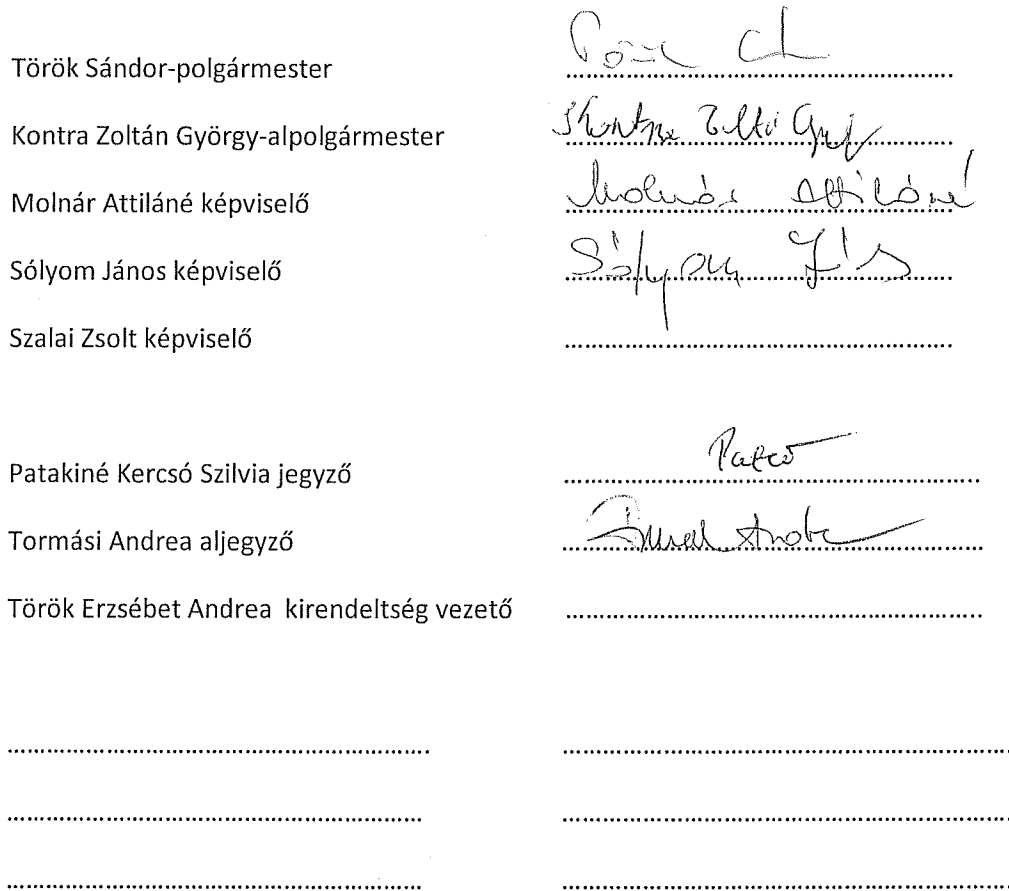 Török Sándor-polgármester
Kontra Zoltán György-alpolgármester Kontra
Molnár Attiláné képviselő Molnár Attiláné
Sólyom János képviselő Sólyom
Szalai Zsolt képviselő
Patakiné Kercsó Szilvia jegyző
Tormási Andrea aljegyző
Török Erzsébet Andrea kirendeltség vezető